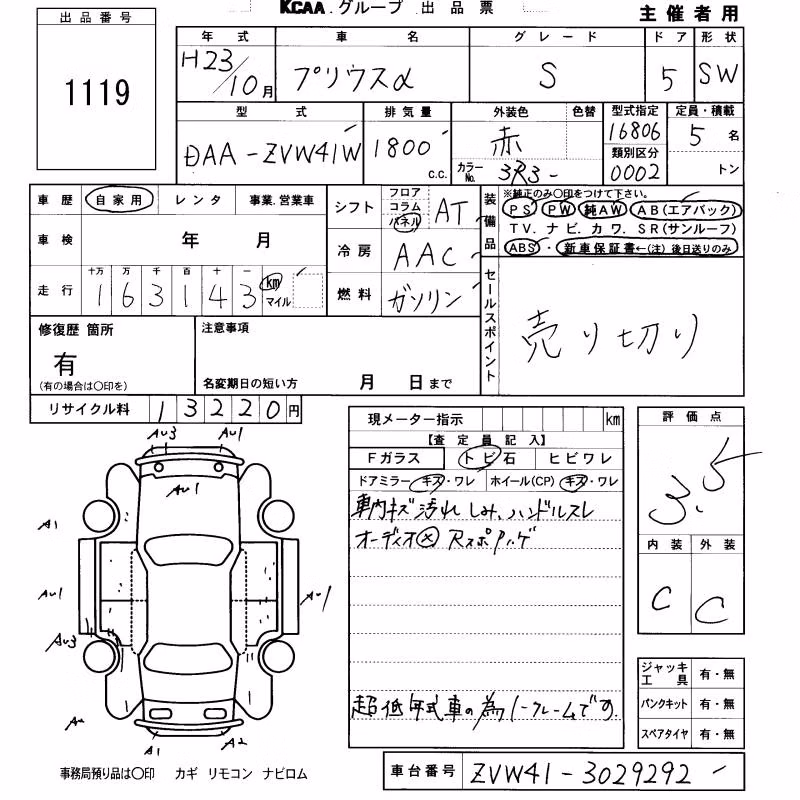 KCAA.グループ 出品票
主催者用
出品番号
1119
年式 車名 グレード ドア 形状
H23/10月 プリウスα S 5 SW
型式 排気量 外装色 色替 型式指定 定員・積載
DAA-ZVW41W 1800 c.c. 赤 16806 5名
カラーNo. 3R3 類別区分 0002 トン
車歴 自家用 レンタ 事業.営業車
車検 年 月
走行 十万 万 千 百 十 一
1 6 3 1 4 3 km マイル
シフト フロア コラム パネル AT
冷房 AAC
燃料 ガソリン
装備品 ※純正のみ○印をつけて下さい。
PS PW 純AW AB(エアバック)
TV. ナビ. カワ. SR(サンルーフ)
ABS・新車保証書←(注)後日送りのみ
セールスポイント
売り切り
修復歴 箇所
有
(有の場合は○印を)
注意事項
名変期日の短い方 月 日まで
リサイクル料 13220円
現メーター指示 km
【査定員記入】
Fガラス トビ石 ヒビワレ
ドアミラー キズ・ワレ ホイール(CP) キズ・ワレ
車内キズ汚れ しみ、ハンドルスレ
オーディオ
超低年式車の為ノークレームです
評価点
3.5
内装 外装
C C
ジャッキ工具 有・無
パンクキット 有・無
スペアタイヤ 有・無
AU3 AU1
AU1
A1
AU1 AU1
AU3
A1 A2
事務局預り品は○印 カギ リモコン ナビロム
車台番号 ZVW41-3029292